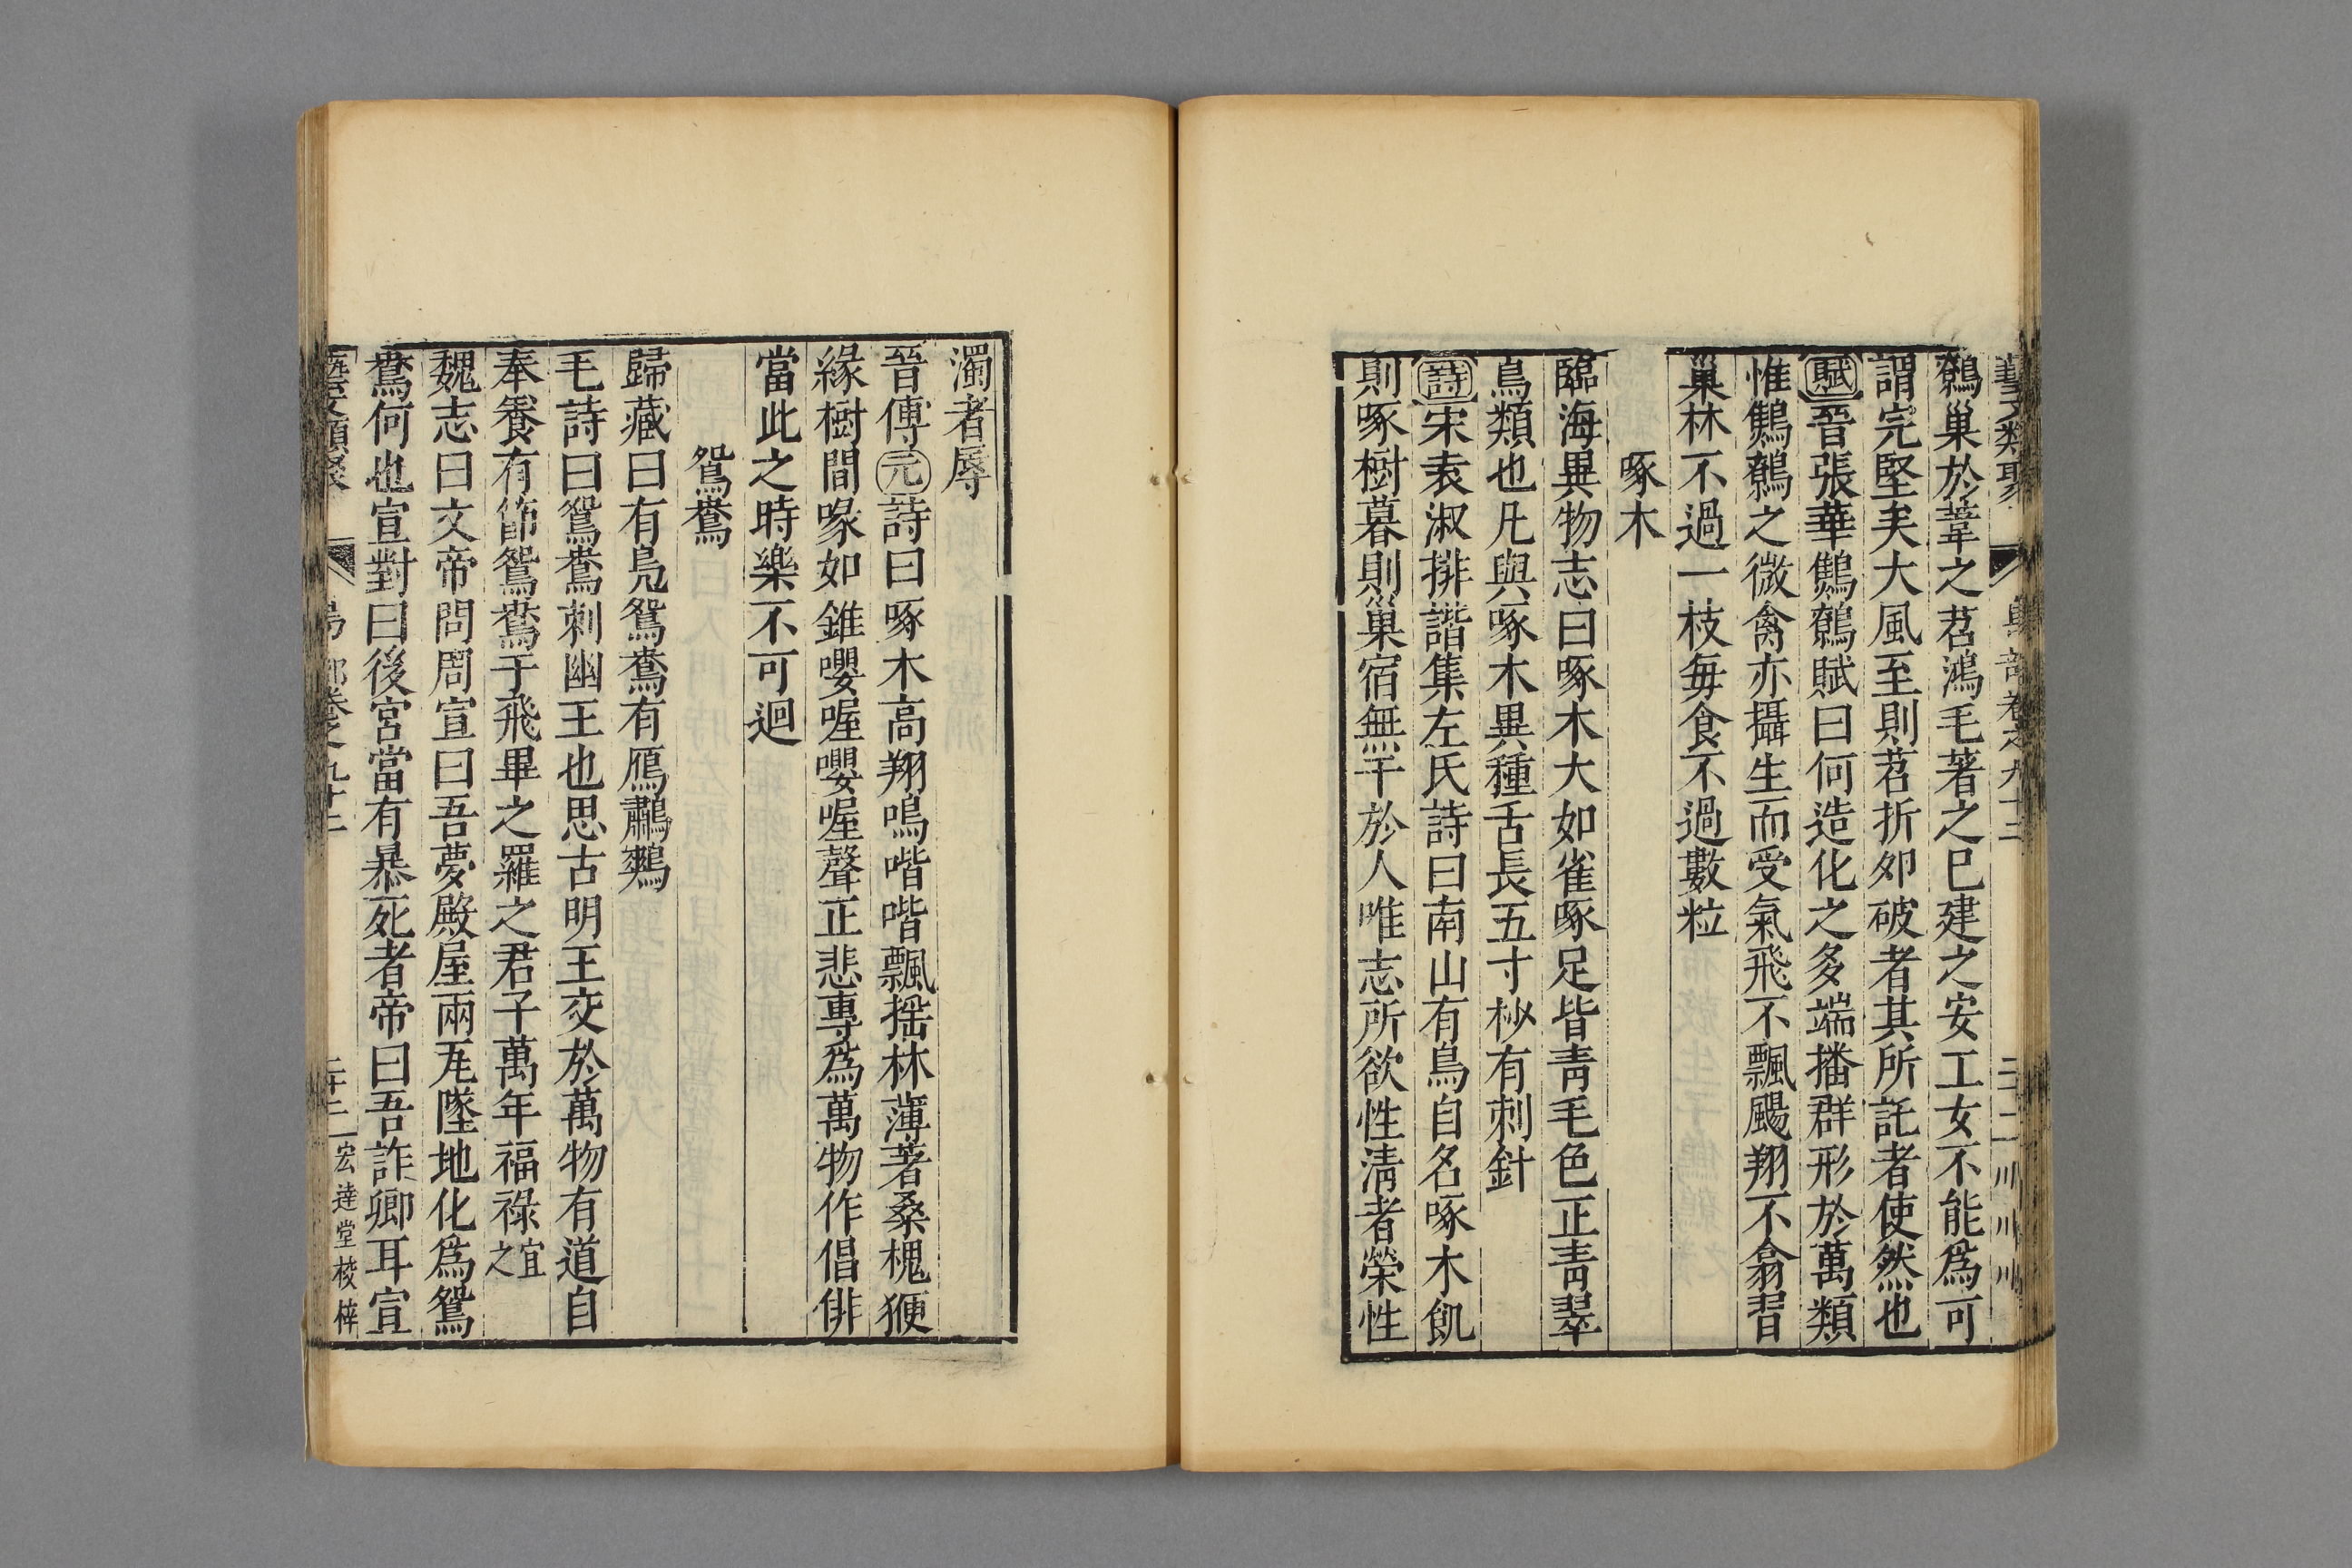 藝文類聚 鳥部卷之九十二
鷦巢於葦之苕鴻毛著之巳建之安工女不能爲可
謂完堅矣大風至則苕折夘破者其所託者使然也
賦晉張華鷦鷯賦曰何造化之多端播群形於萬類
惟鷦鷯之微禽亦攝生而受氣飛不飄颺翔不翕習
巢林不過一枝每食不過數粒
啄木
臨海異物志曰啄木大如雀啄足皆靑毛色正靑翠
鳥類也凡與啄木異種舌長五寸杪有刺針
詩宋袁淑排諧集左氏詩曰南山有鳥自名啄木飢
則啄樹暮則巢宿無干於人唯志所欲性淸者榮性
濁者辱
晉傳元詩曰啄木高翔鳴喈喈飄摇林薄著桑槐㹴
緣樹間喙如錐嚶喔嚶喔聲正悲專爲萬物作倡俳
當此之時樂不可迴
鴛鴦
歸藏曰有鳧鴛鴦有鴈鷫鷞
毛詩曰鴛鴦刺幽王也思古明王交於萬物有道自
奉養有節鴛鴦于飛畢之羅之君子萬年福祿宜之
魏志曰文帝問周宣曰吾夢殿屋兩瓦墜地化爲鴛
鴦何也宣對曰後宮當有暴死者帝曰吾詐卿耳宣
藝文類聚 鳥部卷之九十二 宏達堂校梓